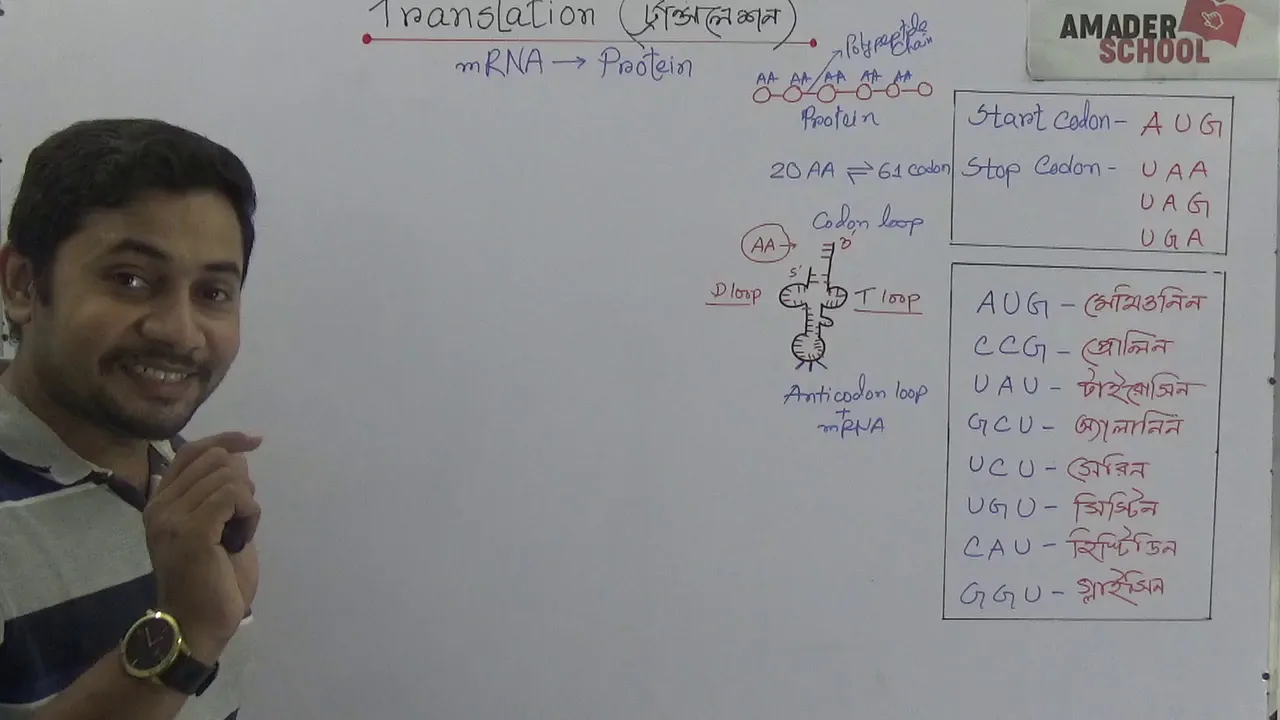 Translation (ট্রান্সলেশন)
mRNA → Protein
Polypeptide chain
AA AA AA AA AA
Protein
20 AA ⇌ 61 codon
Codon loop
AA →
3'
5'
D loop
T loop
Anticodon loop
+
mRNA
AMADER
SCHOOL
Start Codon - AUG
Stop Codon - UAA
UAG
UGA
AUG - মেথিওনিন
CCG - প্রোলিন
UAU - টাইরোসিন
GCU - অ্যালানিন
UCU - সেরিন
UGU - সিস্টিন
CAU - হিস্টিডিন
GGU - গ্লাইসিন